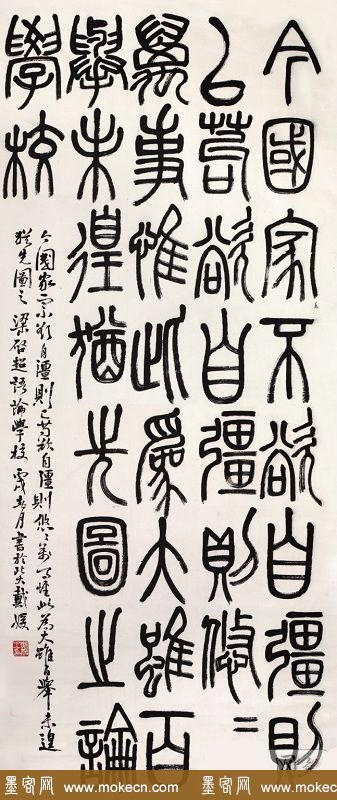 今國家不欲自彊則
已苟欲自彊則悠〓
萬事惟此爲大雖百
舉未遑猶先圖之論
學校
今國家不欲自彊則已苟欲自彊則悠〻萬事惟此為大雖百舉未遑
猶先圖之 梁啓超語論學校 春月書於北大戴媛
墨客网 www.mokecn.com 墨客网 www.mokecn.com